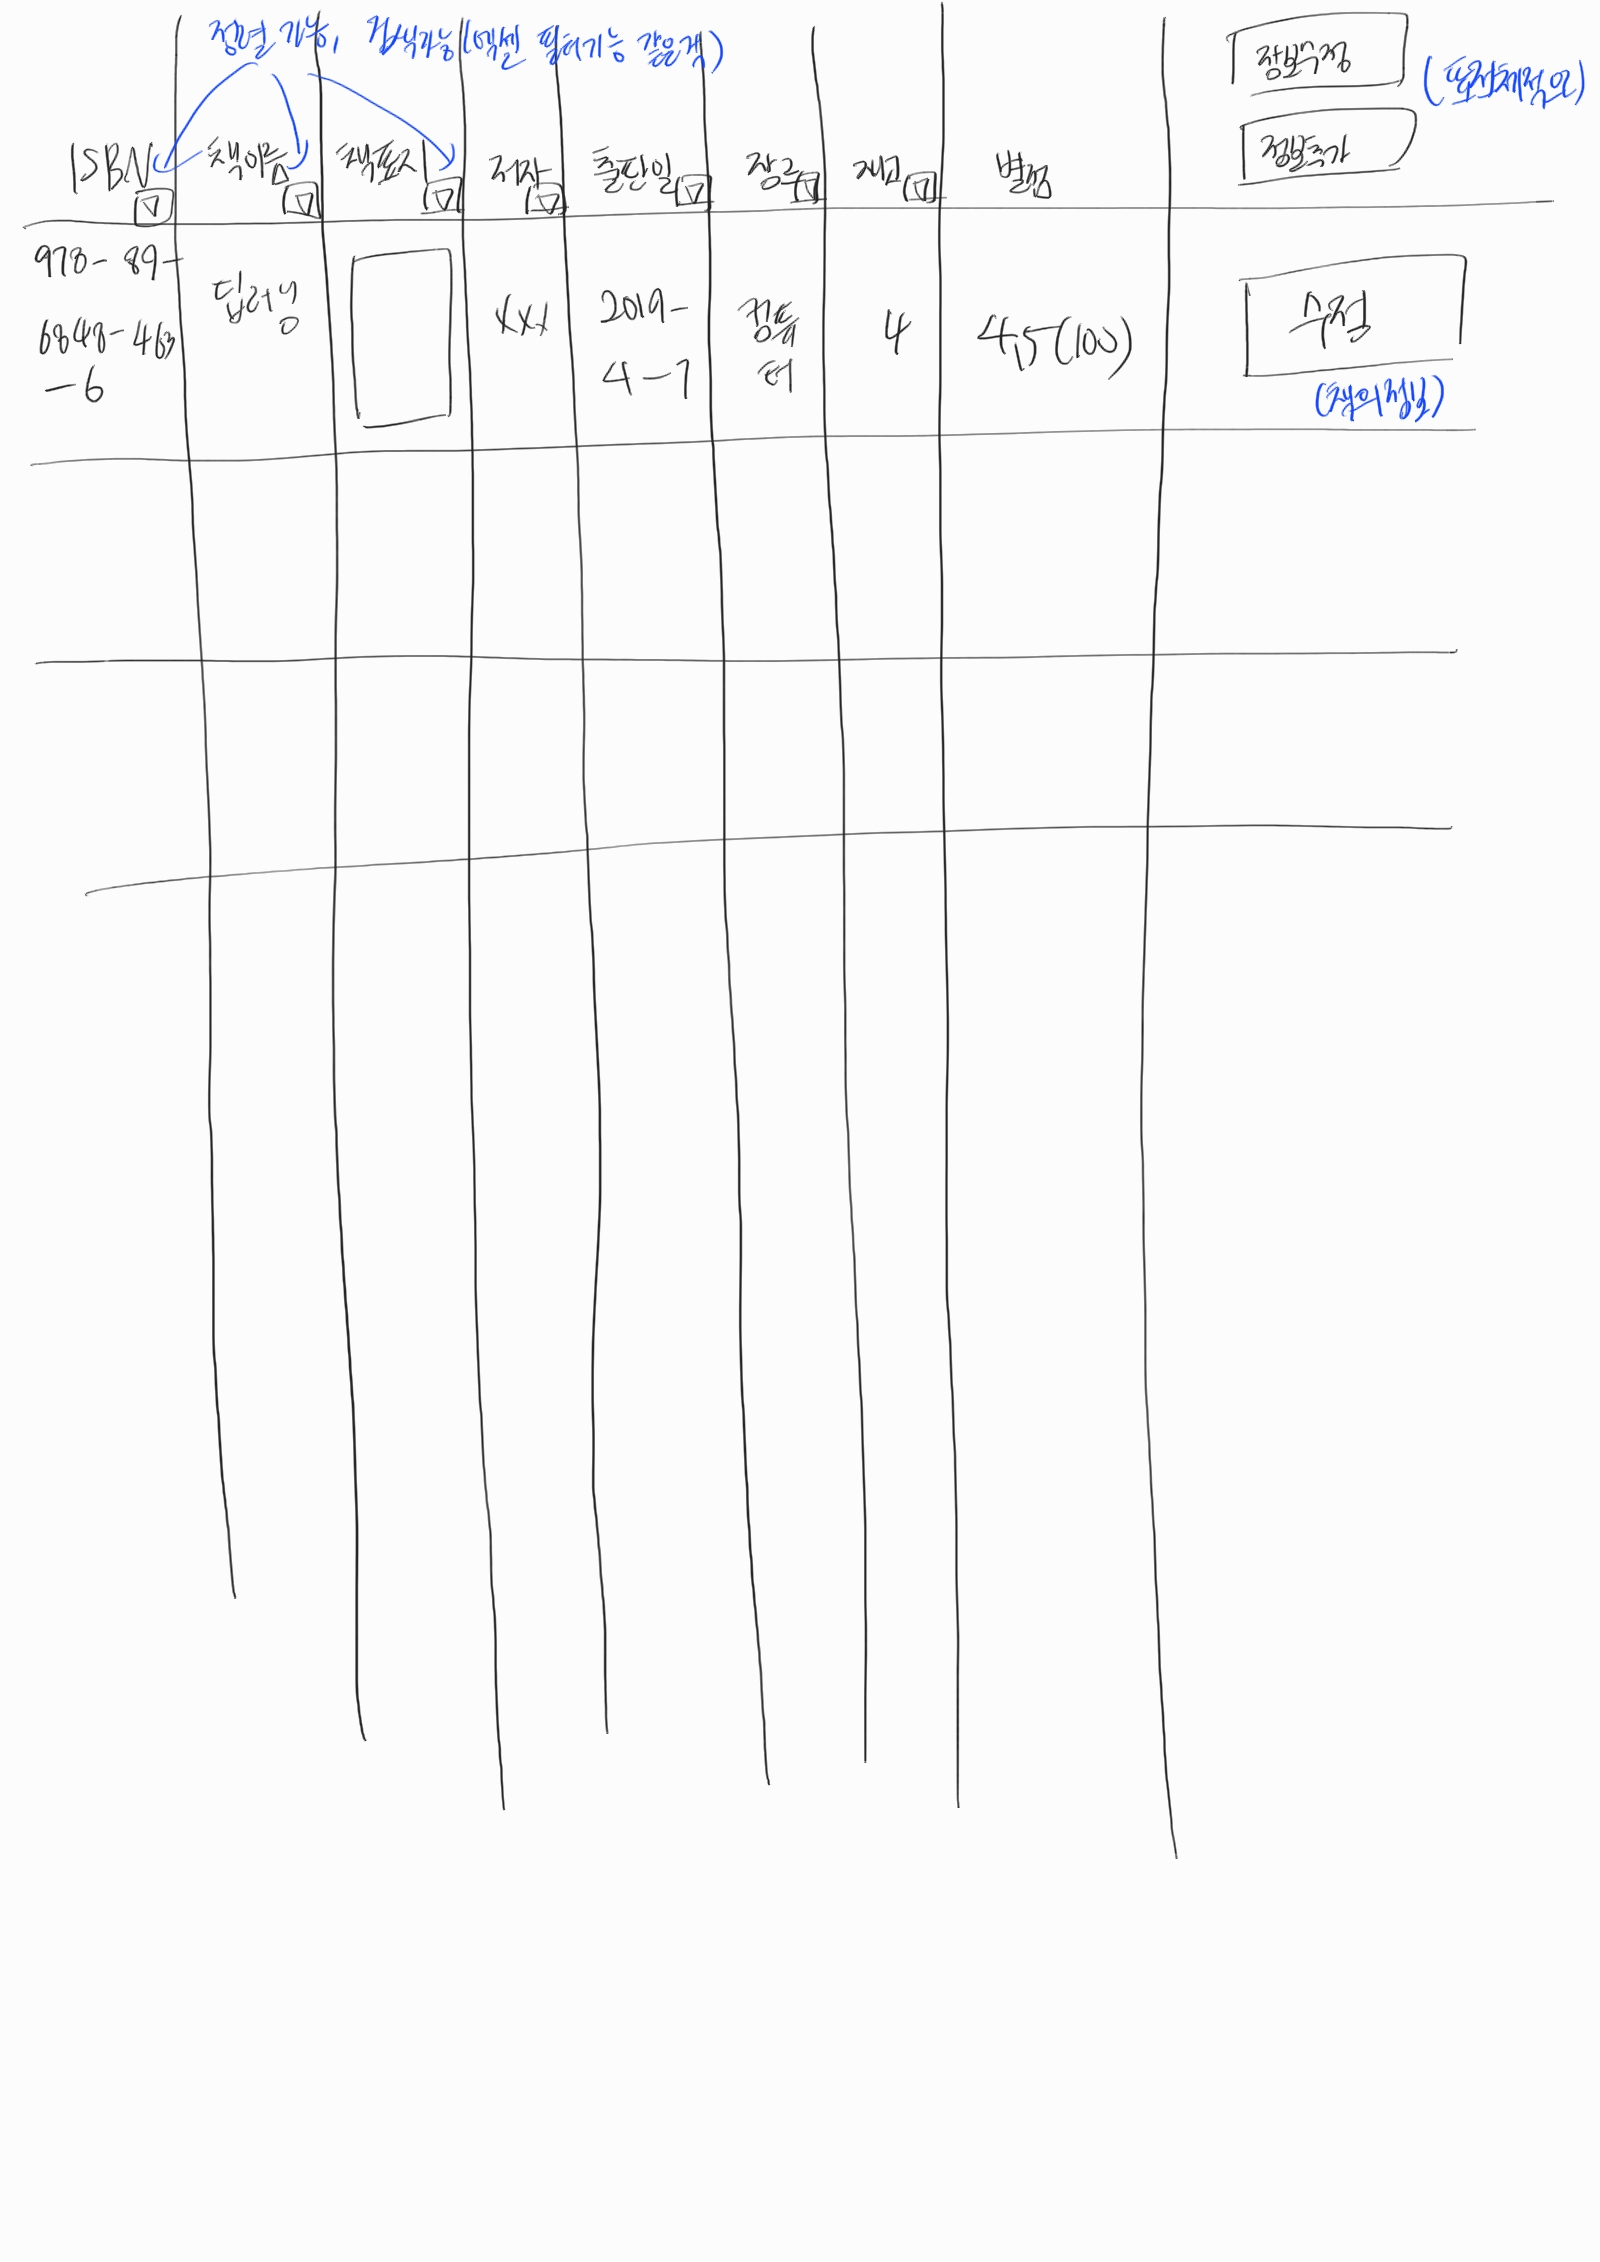 정렬 가능, 검색가능(엑셀 필터기능 같은거)
정보수정
정보추가
ISBN 책이름 책표지 저자 출판일 장르 재고 별점
978-89-
6848-463
-6
딥러닝
xxx
2019-
4-1
컴퓨
터
4
4.5(100)
수정
(책의정보)